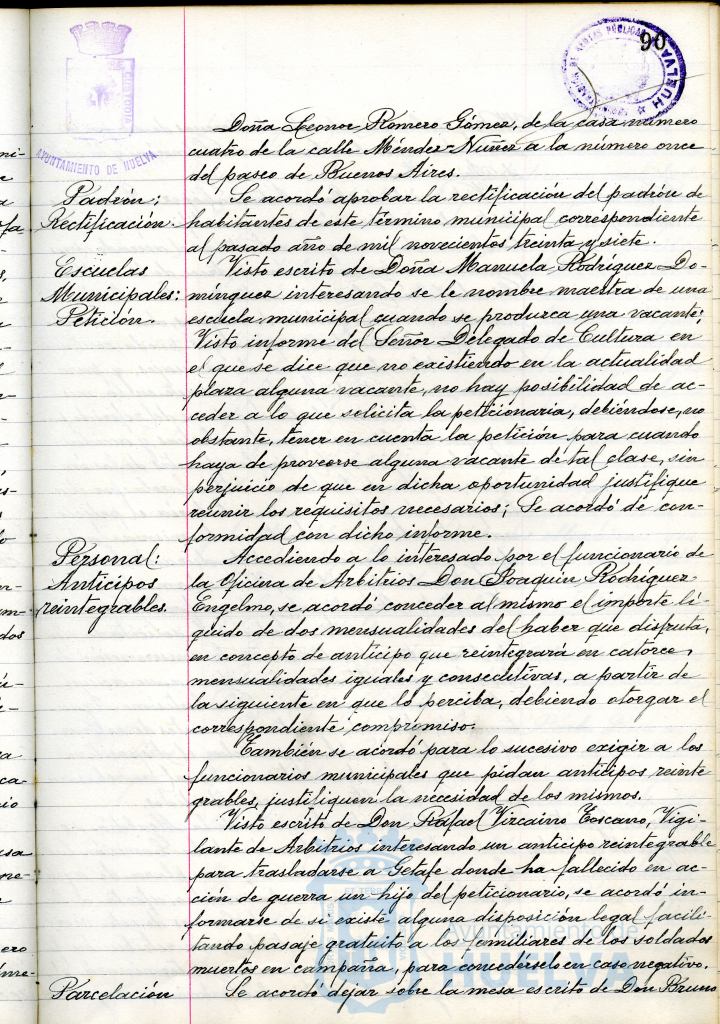 90
HUELVA
AYUNTAMIENTO DE HUELVA
Doña Leonor Romero Gómez, de la casa número
cuatro de la calle Méndez Núñez a la número once
del paseo de Buenos Aires.
Padrón:
Rectificación.
Se acordó aprobar la rectificación del padrón de
habitantes de este término municipal correspondiente
al pasado año de mil novecientos treinta y siete.
Escuelas
Municipales:
Petición.
Visto escrito de Doña Manuela Rodríguez Do-
mínguez interesando se le nombre maestra de una
escuela municipal cuando se produzca una vacante;
Visto informe del Señor Delegado de Cultura en
el que se dice que no existiendo en la actualidad
plaza alguna vacante, no hay posibilidad de ac-
ceder a lo que solicita la peticionaria, debiéndose, no
obstante, tener en cuenta la petición para cuando
haya de proveerse alguna vacante de tal clase, sin
perjuicio de que en dicha oportunidad justifique
reunir los requisitos necesarios; Se acordó de con-
formidad con dicho informe.
Personal:
Anticipos
reintegrables.
Accediendo a lo interesado por el funcionario de
la Oficina de Arbitrios Don Joaquín Rodríguez
Engelmo, se acordó conceder al mismo el importe lí-
quido de dos mensualidades del haber que disfruta,
en concepto de anticipo que reintegrará en catorce
mensualidades iguales y consecutivas, a partir de
la siguiente en que lo perciba, debiendo otorgar el
correspondiente compromiso.
También se acordó para lo sucesivo exigir a los
funcionarios municipales que pidan anticipos reinte
grables, justifiquen la necesidad de los mismos.
Visto escrito de Don Rafael Vizcaino Toscano, Vigi-
lante de Arbitrios interesando un anticipo reintegrable
para trasladarse a Getafe donde ha fallecido en ac-
ción de guerra un hijo del peticionario, se acordó in-
formarse de si existe alguna disposición legal facili-
tando pasaje gratuito a los familiares de los soldados
muertos en campaña, para concedérselo en caso negativo.
Parcelación
Se acordó dejar sobre la mesa escrito de Don Bruno
Ayuntamiento de
HUELVA